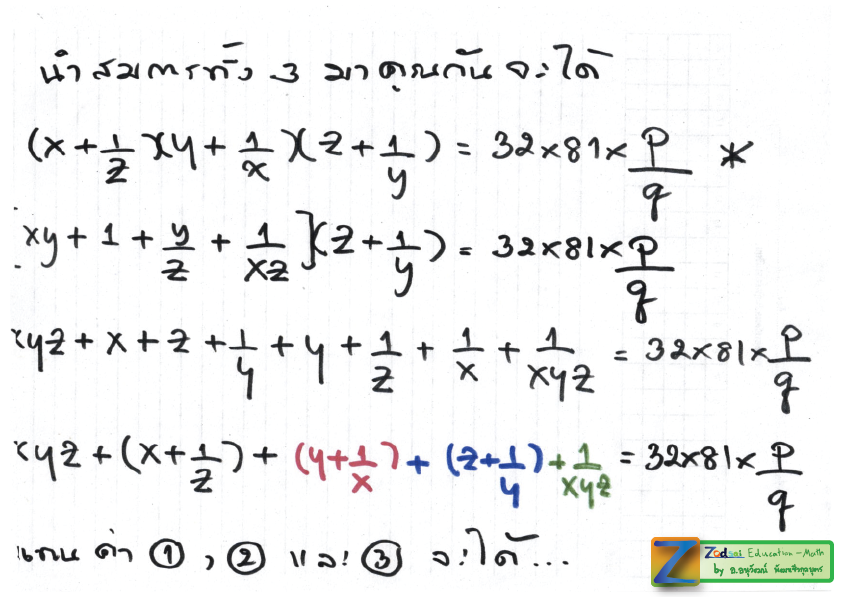 นำสมการทั้ง 3 มาคูณกัน จะได้
(x + 1/z)(y + 1/x)(z + 1/y) = 32×81× p/q *
xy + 1 + y/z + 1/xz ](z + 1/y) = 32×81× p/q
xyz + x + z + 1/y + y + 1/z + 1/x + 1/xyz = 32×81× p/q
xyz + (x + 1/z) + (y + 1/x) + (z + 1/y) + 1/xyz = 32×81× p/q
แทนค่า ① , ② และ ③ จะได้ ...
Z Zodsai Education - Math
by อ.